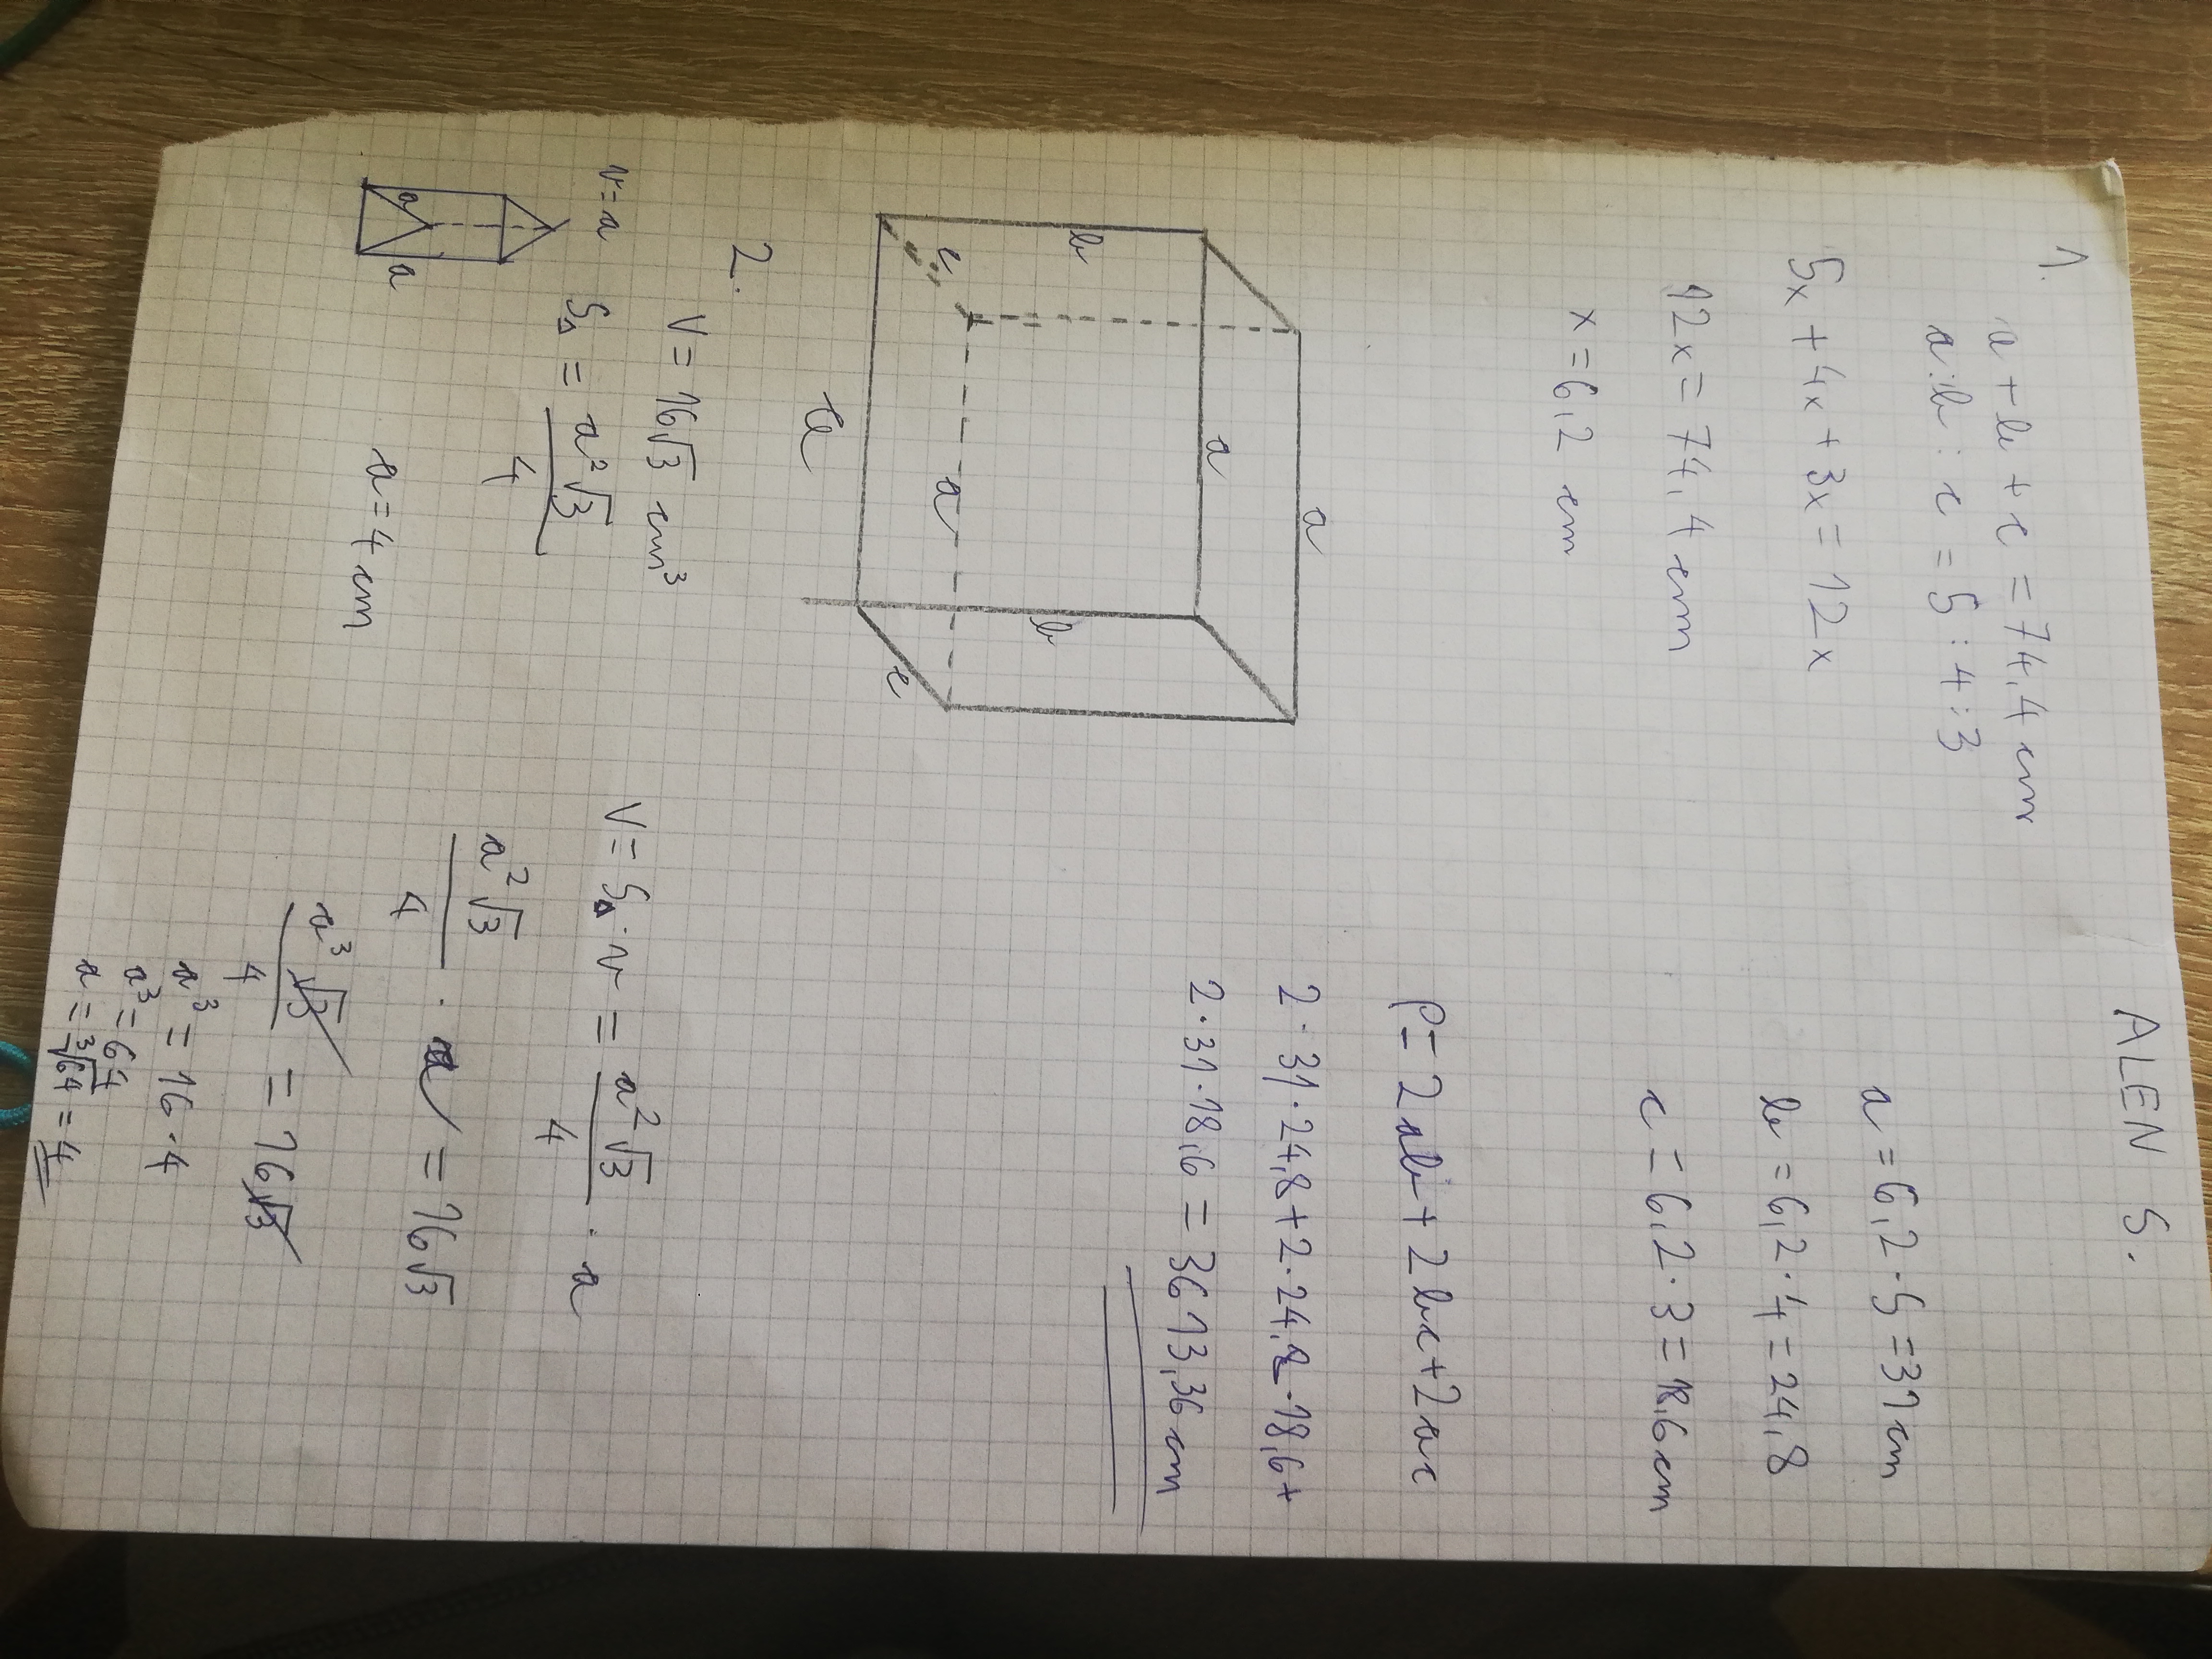 ALEN S.
1.
a + b + c = 74,4 cm
a : b : c = 5 : 4 : 3
5x + 4x + 3x = 12x
12x = 74,4 cm
x = 6,2 cm
a = 6,2 · 5 = 31 cm
b = 6,2 · 4 = 24,8
c = 6,2 · 3 = 18,6 cm
P = 2ab + 2bc + 2ac
2 · 31 · 24,8 + 2 · 24,8 · 18,6 +
2 · 31 · 18,6 = 3613,36 cm
a
a
b
a
b
c
c
a
2.
V = 16√3 cm³
v = a
S△ = a²√3 / 4
a
a
a = 4 cm
V = S△ · v = a²√3 / 4 · a
a²√3 / 4 · a = 16√3
a³√3 / 4 = 16√3
a³ = 16 · 4
a³ = 64
a = ³√64 = 4